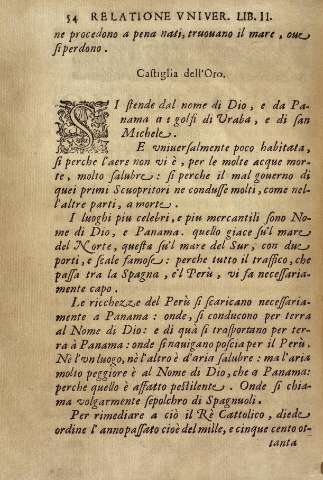 54 RELATIONE VNIVER. LIB. II.
ne procedono a pena nati, truouano il mare, oue
si perdono.
Castiglia dell'Oro.
SI stende dal nome di Dio, e da Pa-
nama a i golfi di Vraba, e di san
Michele.
E vniuersalmente poco habitata,
si perche l'aere non vi è, per le molte acque mor-
te, molto salubre: si perche il mal gouerno di
quei primi Scuopritori ne condusse molti, come nel-
l'altre parti, a morte.
I luoghi piu celebri, e piu mercantili sono No-
me di Dio, e Panama. quello giace su'l mare
del Norte, questa su'l mare del Sur, con due
porti, e scale famose: perche tutto il traffico, che
passa tra la Spagna, e'l Perù, vi fa necessaria-
mente capo.
Le ricchezze del Perù si scaricano necessaria-
mente a Panama: onde, si conducono per terra
al Nome di Dio: e di quà si trasportano per ter-
ra à Panama: onde si nauigano poscia per il Perù.
Nè l'vn luogo, nè l'altro è d'aria salubre: ma l'aria
molto peggiore è al Nome di Dio, che a Panama:
perche quello è affatto pestilente. Onde si chia-
ma volgarmente sepolchro di Spagnuoli.
Per rimediare a ciò il Rè Cattolico, diede
ordine l'anno passato cioè del mille, e cinque cento ot-
tanta